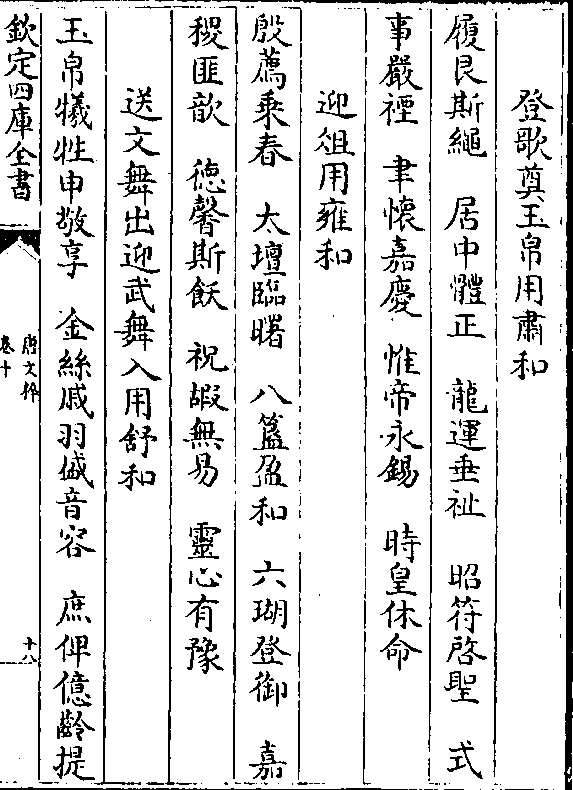 登歌奠玉帛用肅和
履艮斯繩　居中體正　龍運垂祉　昭符啓聖　式
事嚴禋　聿懷嘉慶　惟帝永錫　時皇休命
迎俎用雍和
殷薦乘春　太壇臨曙　八簋盈和　六瑚登御　嘉
稷匪歆　德馨斯飫　祝嘏無易　靈心有豫
送文舞出迎武舞入用舒和
玉帛犧牲申敬享　金絲戚羽盛音容　庶俾億齡提
欽定四庫全書
唐文粹
卷十
十八